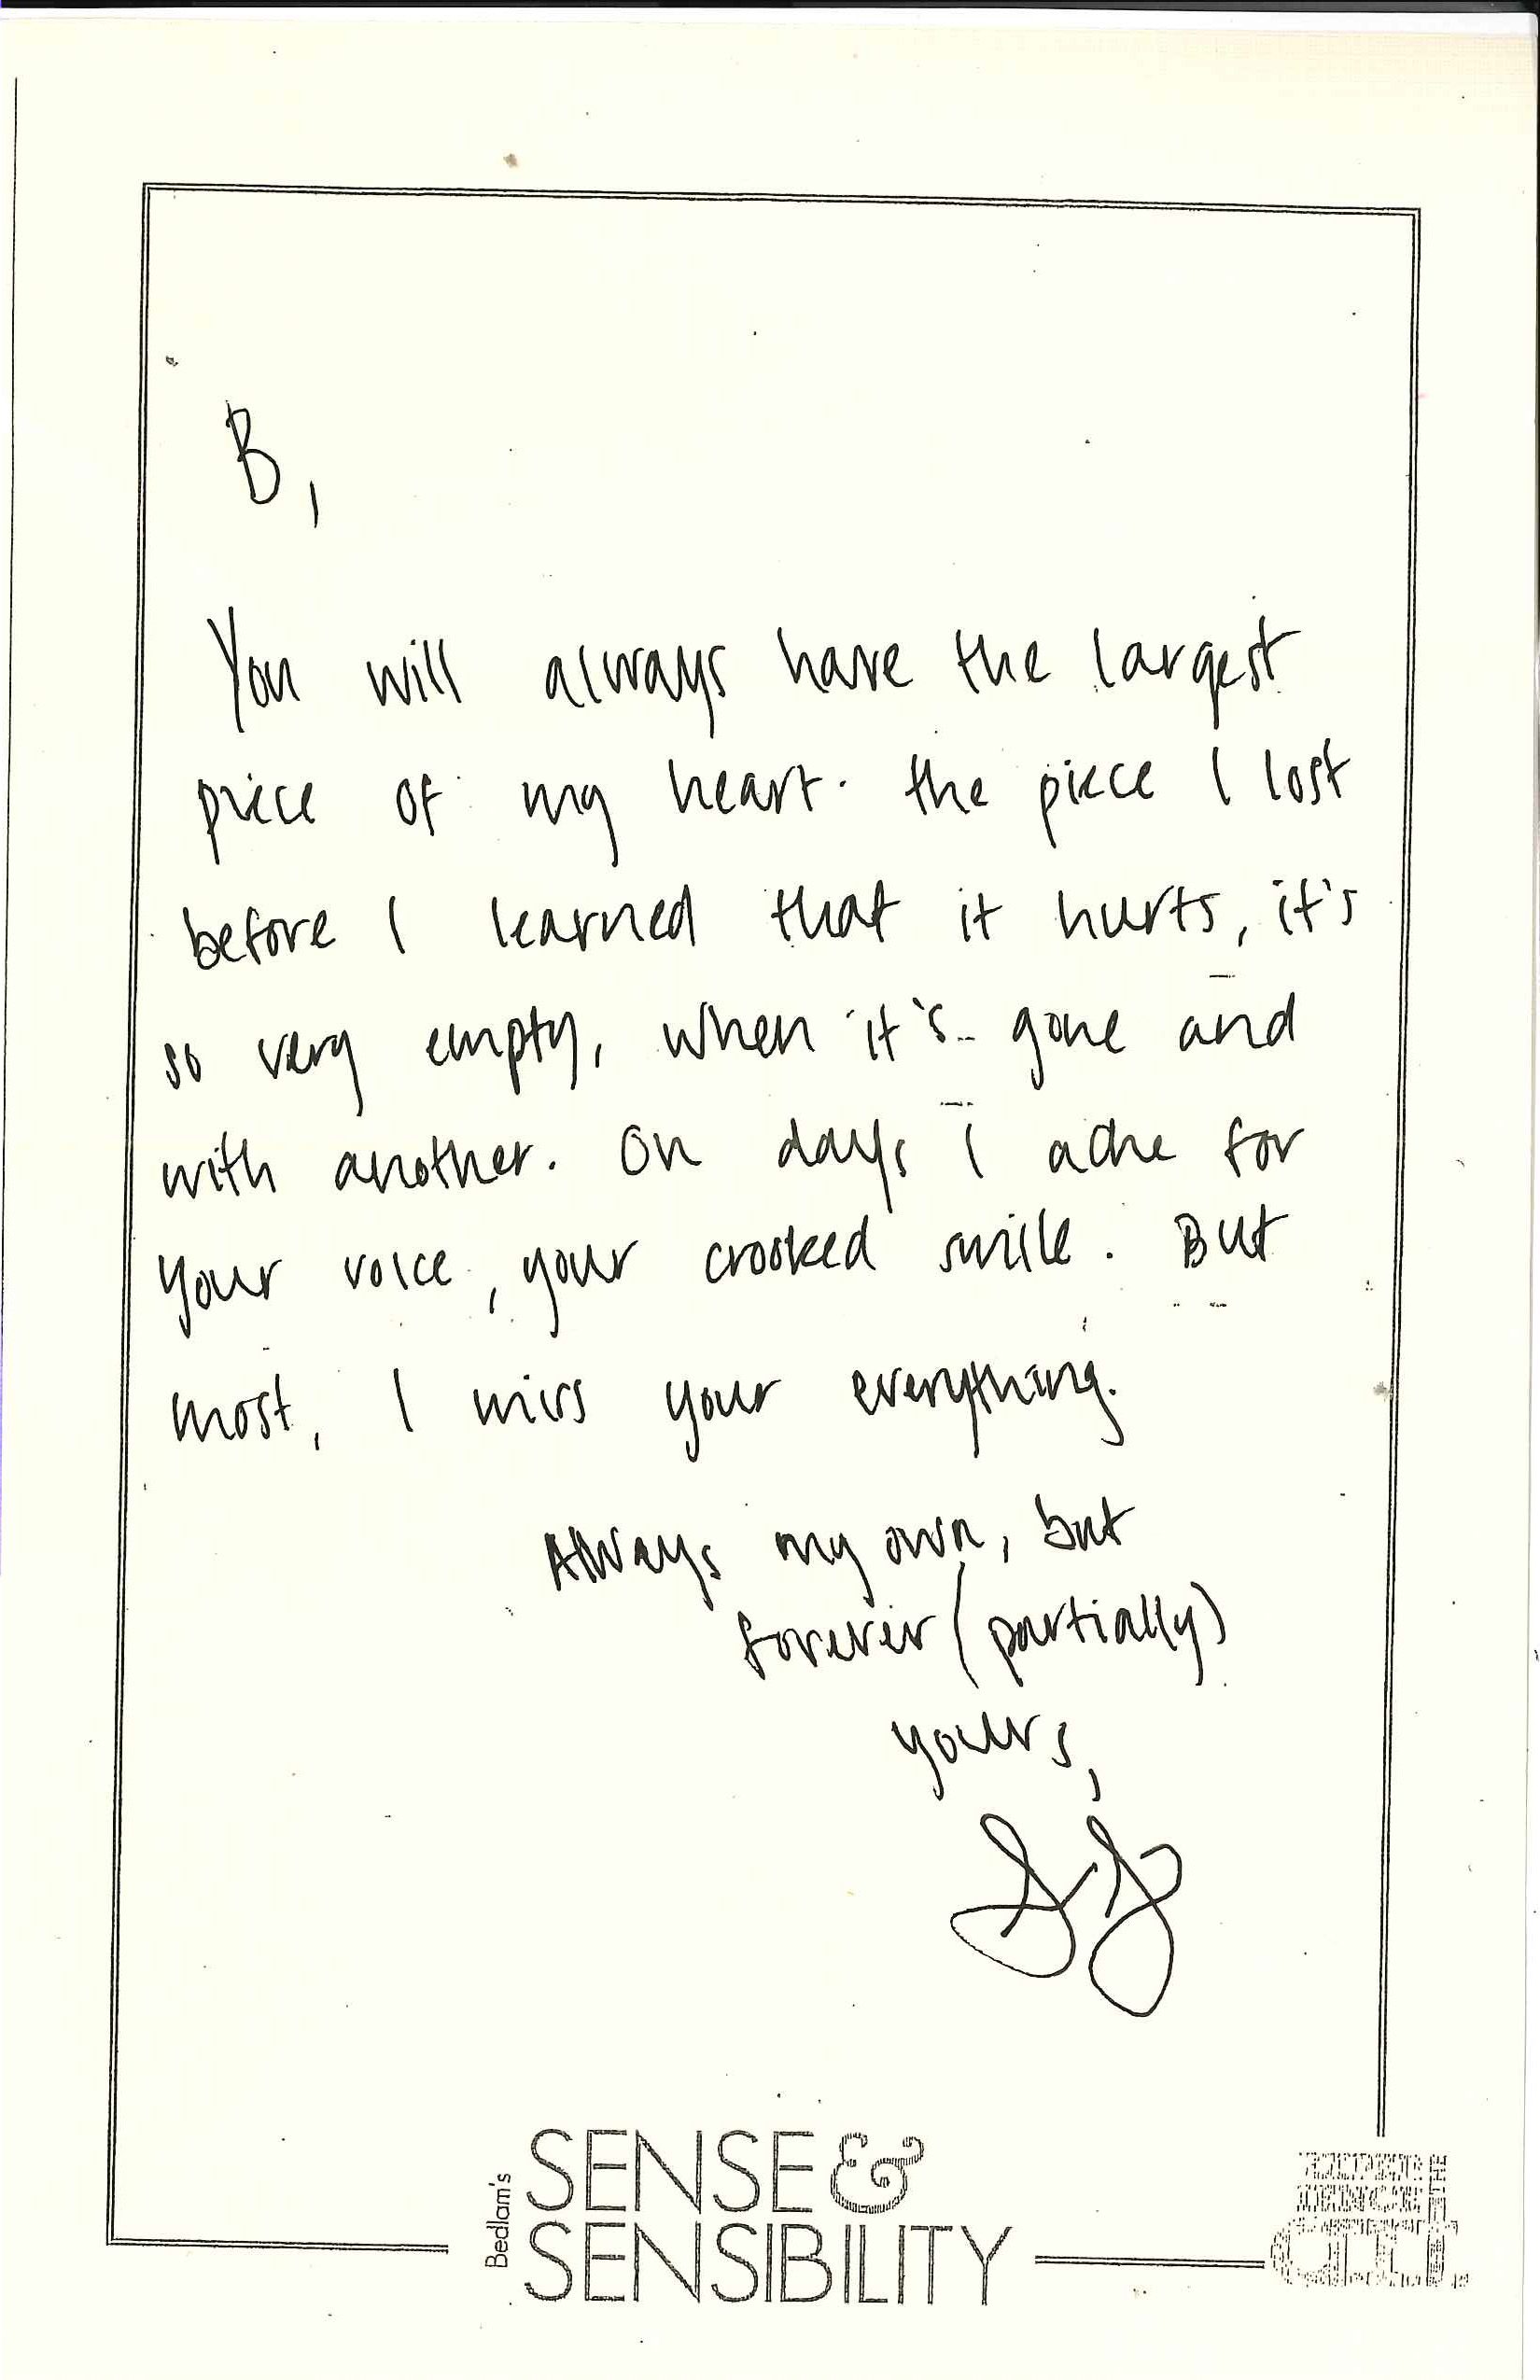 B,
You will always have the largest
piece of my heart. the piece I lost
before I learned that it hurts, it's
so very empty, when it's gone and
with another. On days I ache for
your voice, your crooked smile. But
most, I miss your everything.
Always my own, but
forever (partially)
yours,
Bedlam's
SENSE &
SENSIBILITY
THE